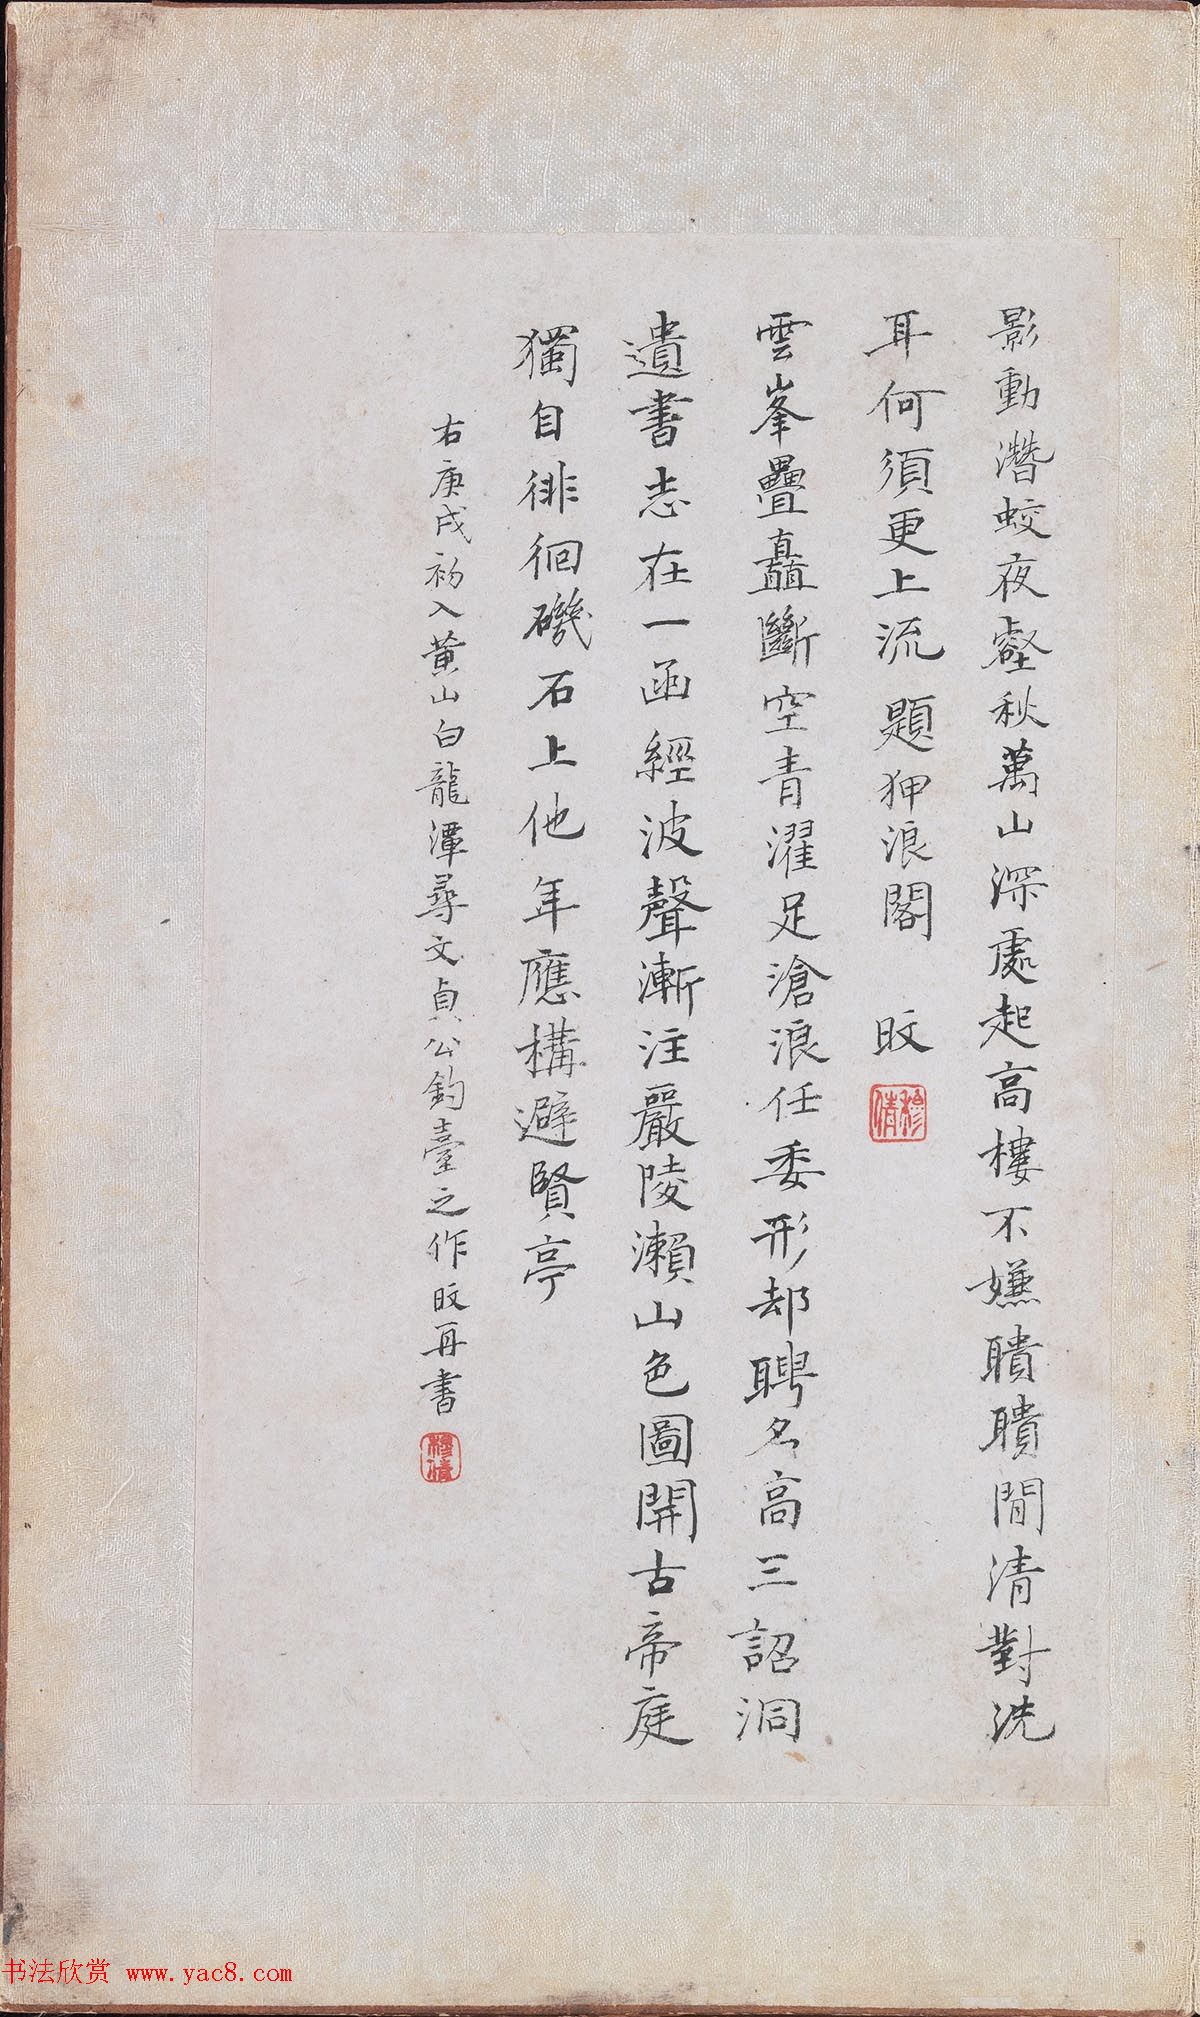 影動潛蛟夜壑秋萬山深處起高樓不嫌聵聵閒清對洗
耳何須更上流 題狎浪閣 旼
穆倩
雲峯疊矗斷空青濯足滄浪任委形却聘名高三詔洞
遺書志在一函經波聲漸注嚴陵瀨山色圖開古帝庭
獨自徘徊磯石上他年應構避賢亭
右庚戌初入黄山白龍潭尋文貞公釣臺之作旼再書
穆倩
书法欣赏 www.yac8.com